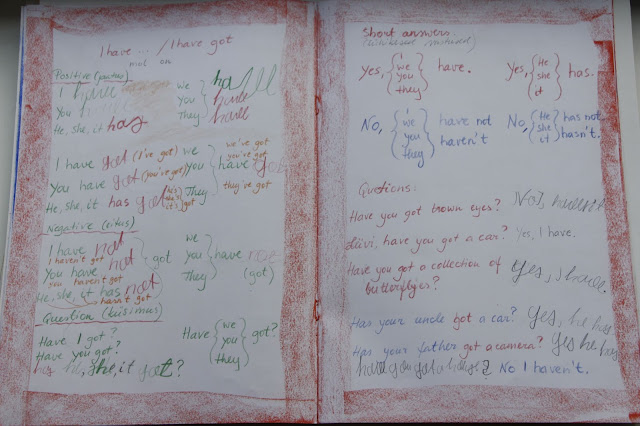 I have ... / I have got
mul on
Positive
I have
You have
He, she, it has
we
You
They
have
have
I have got (I've got)
You have got (you've got)
He, she, it has got
he's
she's
it's got
we
You
They
have got
we've got
you've got
they've got
Negative (eitus)
I have not
I haven't got
You have not
you haven't got
He, she, it has not
hasn't got
got
we
you
They
have not
(got)
Question (küsimus)
Have I got?
Have you got?
has he, she, it got?
Have
we
you
they
got?
Short answers
Yes,
I
we
you
they
have.
Yes,
He
she
it
has.
No,
I
we
you
they
have not
haven't
No,
He
she
it
has not.
hasn't.
Questions:
Have you got brown eyes? No I, haven't
Liivi, have you got a car? Yes, I have.
Have you got a collection of Yes, I have.
butterflyes?
Has your uncle got a car? Yes, he has
Has your father got a camera? Yes he has
have you got a house? No I haven't.